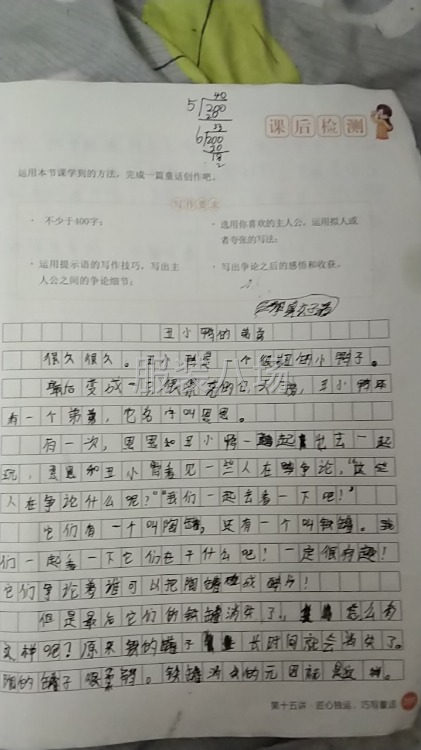 40
5 280
280
33
6 200
20
18
2
课后检测
运用本节课学到的方法，完成一篇童话创作吧。
写作要求
· 不少于400字；
· 选用你喜欢的主人公，运用拟人或者夸张的写法；
· 运用提示语的写作技巧，写出主人公之间的争论细节；
· 写出争论之后的感悟和收获。
丑小鸭的弟弟
很久很久。丑小鸭是一个很丑的小鸭子。
最后变成一只很漂亮的白天鹅，丑小鸭还
有一个弟弟，它名字叫思思。
有一次，思思和丑小鸭一起出去一起
玩，思思和丑小鸭看见一些人在争论，“这些
人在争论什么呢？”“我们一起去看一下吧！”
它们有一个叫陶罐，还有一个叫铁罐。我
们一起看一下它们在干什么吧！一定很有趣！
它们争论着谁可以把陶罐碰成碎片！
但是最后它们的铁罐消失了，怎么有
这样呢？原来铁的罐子长时间就会消失了。
陶的罐子很柔弱。铁罐消失的元因就是这样。
第十五讲 匠心独运，巧写童话
服装八场